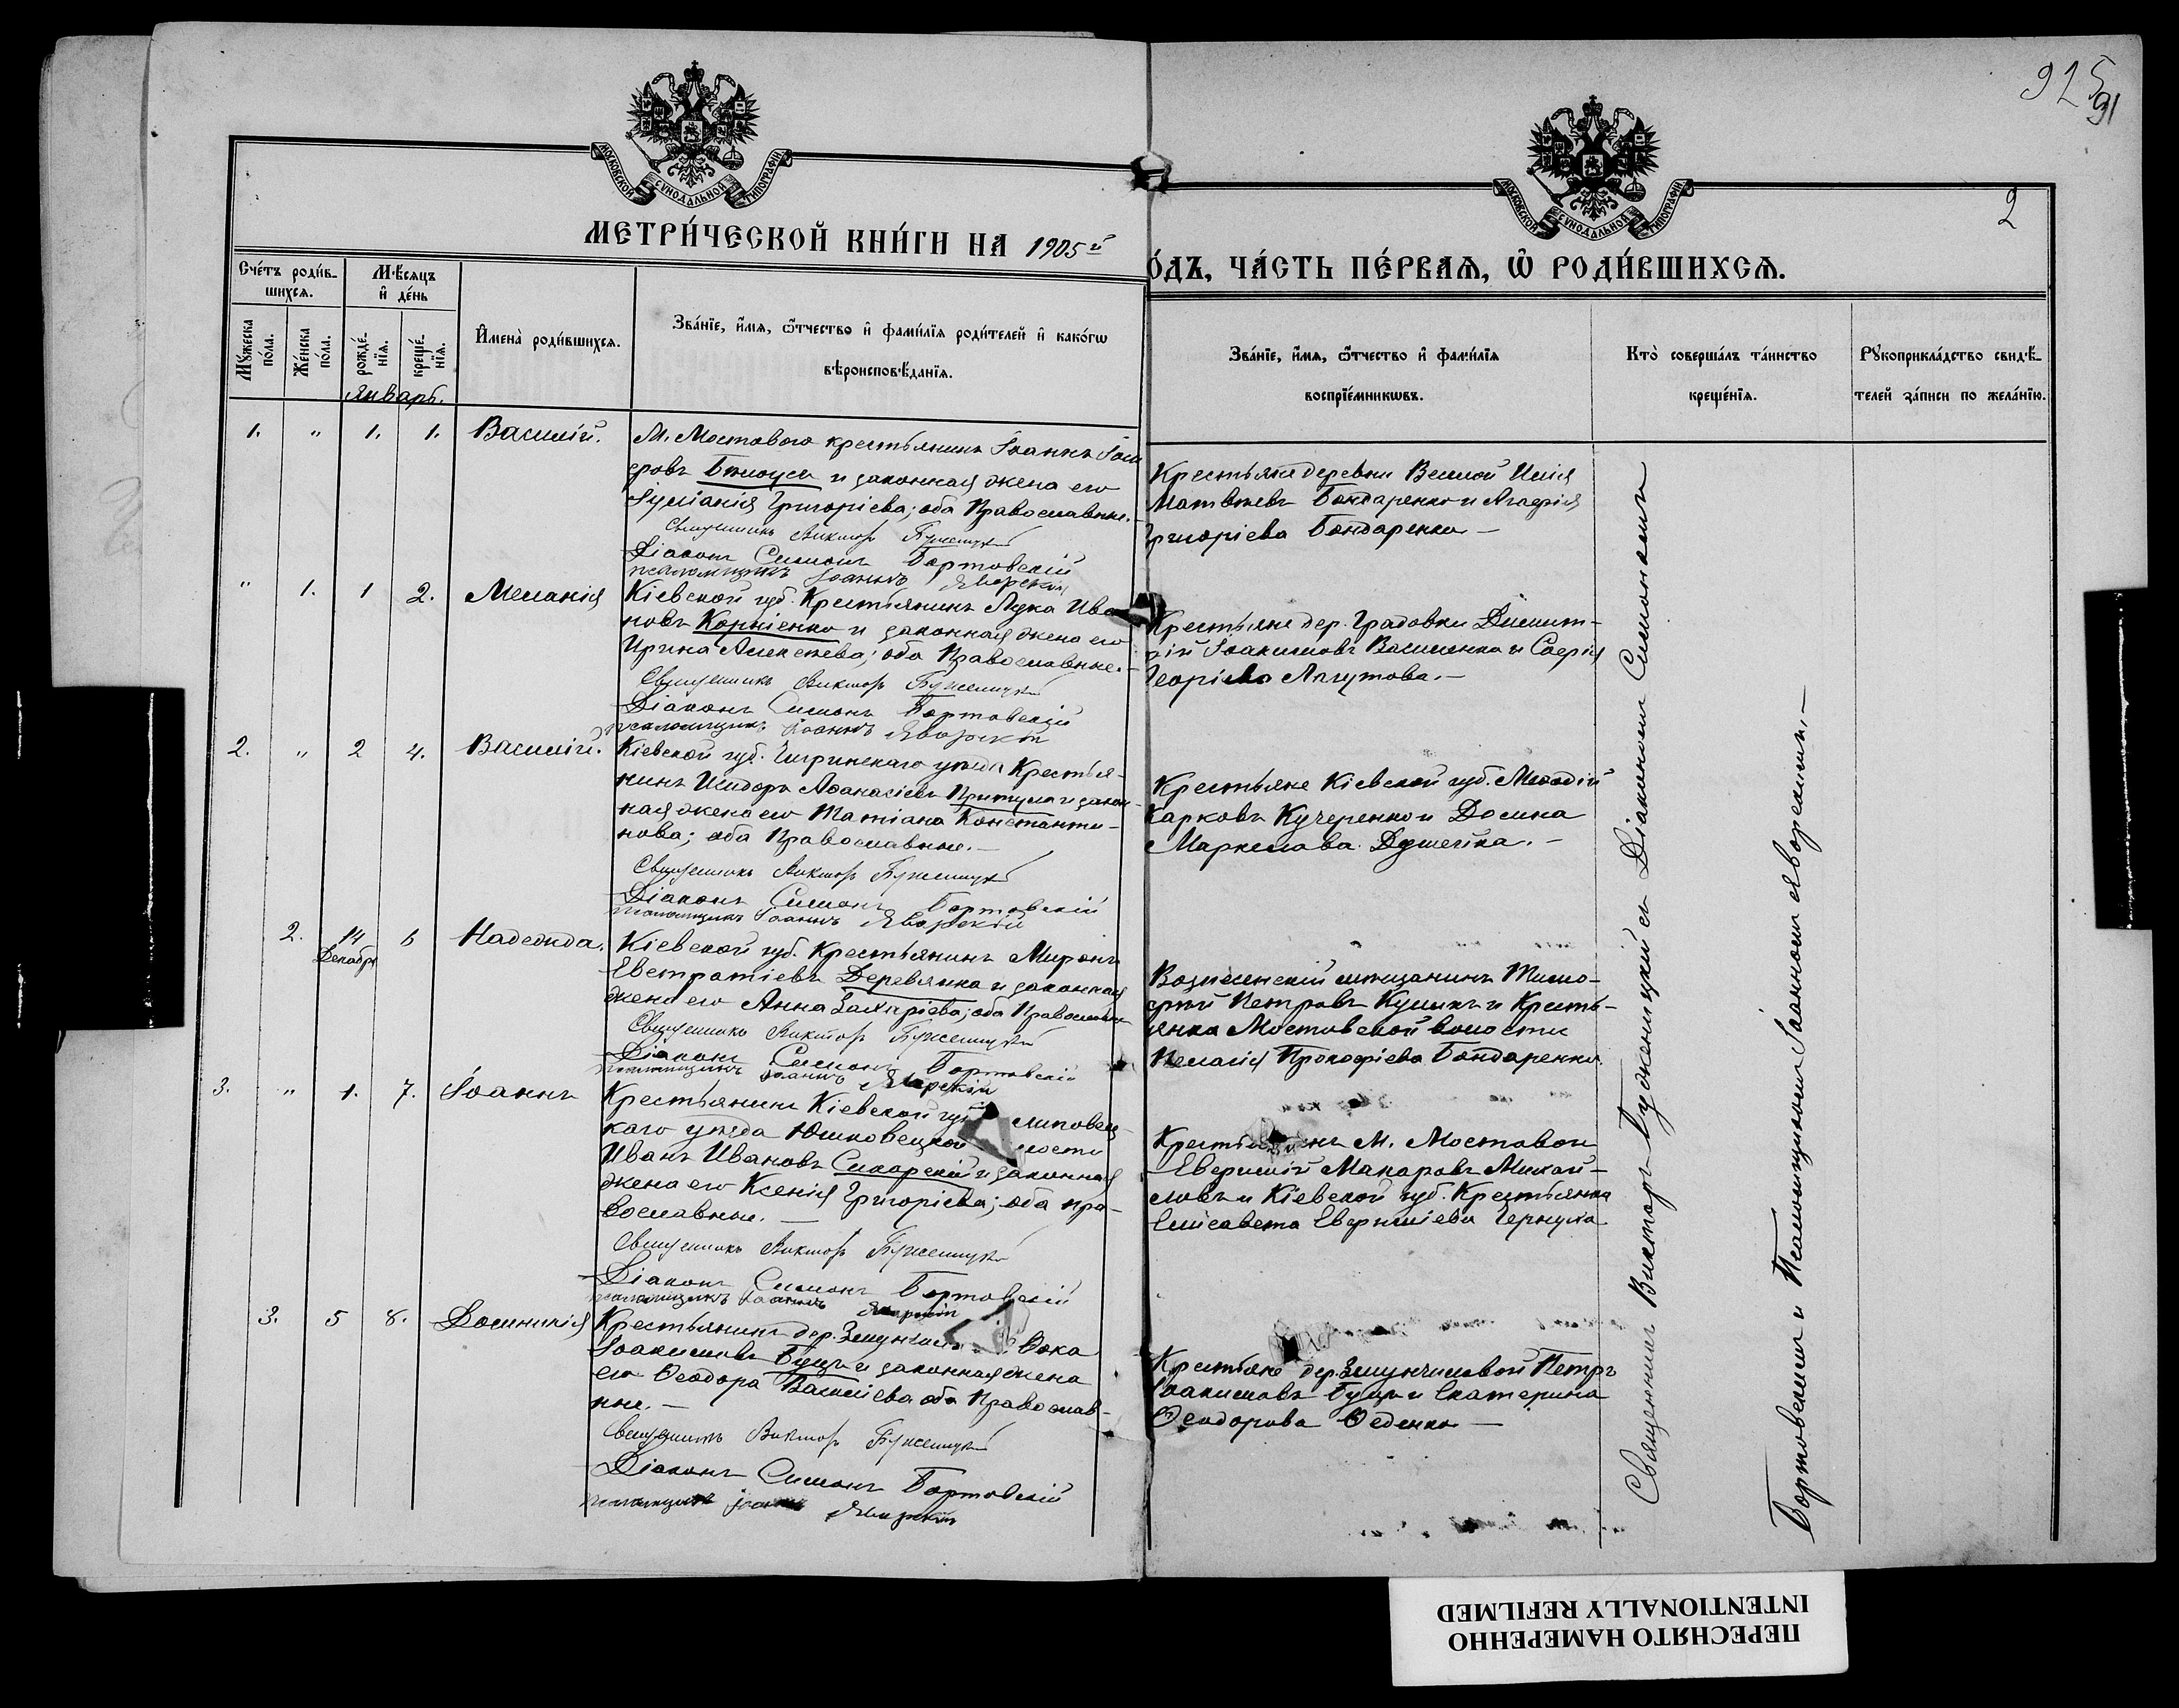 925
91
2
МОСКОВСКОЙ СѴНОДАЛЬНОЙ ТИПОГРАФІИ
МОСКОВСКОЙ СѴНОДАЛЬНОЙ ТИПОГРАФІИ
МЕТРИ́ЧЕСКОЙ КНИ́ГИ НА 1905й
О́ДЪ, ЧА́СТЬ ПЕ́РВАѦ, Ѽ РОДИ́ВШИХСѦ.
Сче́тъ роди́в-
шихсѧ.
Мꙋ́жеска по́ла.
Же́нска по́ла.
Мѣ́сѧцъ
и҆ де́нь
рожде́-
нїѧ.
креще́-
нїѧ.
И҆мена̀ роди́вшихсѧ.
Зва́нїе, и҆́мѧ, ѻ҆́тчество и҆ фами́лїѧ роди́телей и҆ како́гѡ
вѣроисповѣ́данїѧ.
Зва́нїе, и҆́мѧ, ѻ҆́тчество и҆ фами́лїѧ
воспрїе́мникѡвъ.
Кто̀ соверша́лъ та́инство
креще́нїѧ.
Рꙋкоприкла́дство свидѣ́-
телей за́писи по жела́нїю.
Январь.
1. " 1. 1. Василій.
М. Мостового крестьянинъ Іоаннъ Іоси
фовъ Бѣлоусъ и законная жена его
Іуліанія Григоріева; оба Православные.
Священникъ Викторъ
Діаконъ Симонъ Бортовскій
псаломщикъ Іоаннъ Яворскій
Крестьяне деревни Веселой Илія
Матвѣевъ Бондаренко и Агафія
Григоріева Бондаренко —
" 1. 1 2. Меланія
Кіевской губ. Крестьянинъ Лука Ива
новъ Корніенко и законная жена его
Ирина Алексѣева; оба Православные.—
Священникъ Викторъ
Діаконъ Симонъ Бортовскій
псаломщикъ Іоаннъ Яворскій
Крестьяне дер. Градовки Димит-
рій Іоакимовъ Василенко и Софія
Георгіева Лагутова.—
2. " 2 4. Василій.
Кіевской губ. Чигринскаго уѣзда Крестья-
нинъ Исидоръ Аѳанасіевъ Притула и закон-
ная жена его Татіана Константи-
нова; оба Православные.—
Священникъ Викторъ
Діаконъ Симонъ Бортовскій
псаломщикъ Іоаннъ Яворскій
Крестьяне Кіевской губ. Меѳодій
Карповъ Кучеренко и Домна
Маркелова —
2. 14 Декабря 6 Надежда.
Кіевской губ. Крестьянинъ Миронъ
Евстратіевъ Деревянко и законная
жена его Анна Захаріева; оба Православные
Священникъ Викторъ
Діаконъ Симонъ Бортовскій
псаломщикъ Іоаннъ Яворскій
Вознесенскій мѣщанинъ Тимо-
фѣй Петровъ и Кресть-
янка Мостовской волости
Пелагія Прокофіева Бондаренко.
3. " 1. 7. Іоаннъ
Крестьянинъ Кіевской губ липовец-
каго уѣзда Юшковецкой лости
Иванъ Ивановъ Сикорскій и законная
жена его Ксенія Григоріева; оба пра-
вославные.—
Священникъ Викторъ
Діаконъ Симонъ Бортовскій
псаломщикъ Іоаннъ Яворскій
Крестьянинъ М. Мостовой
Евфимій Макаровъ Михай-
ловъ и Кіевской губ. Крестьянка
Елисавета Евфиміева Чернуха
3. 5 8. Домникія
Крестьянинъ дер. Ѳока
Іоакимовъ Буцъ и законная жена
его Ѳеодора Василіева оба Православ-
ные.—
Священникъ Викторъ
Діаконъ Симонъ Бортовскій
псаломщикъ Іоаннъ Яворскій
Крестьяне дер. Петръ
Іоакимовъ Буцъ и Екатерина
Ѳеодорова Ѳеденко —
Священникъ Викторъ съ Діакономъ Симономъ
Бортовскимъ и Псаломщикомъ Іоанномъ Яворскимъ.—
ПЕРЕСНЯТО НАМЕРЕННО
INTENTIONALLY REFILMED